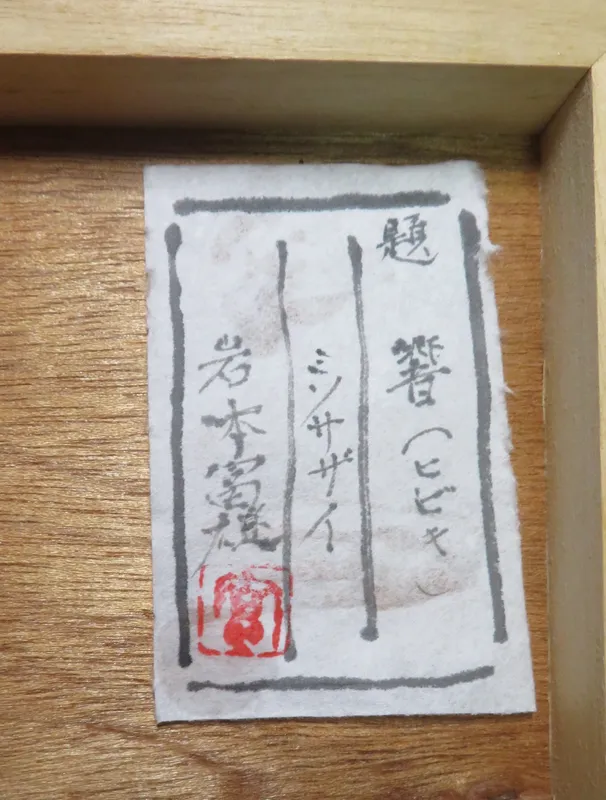 題 響(ヒビキ)
ミソサザイ
岩本富雄
富